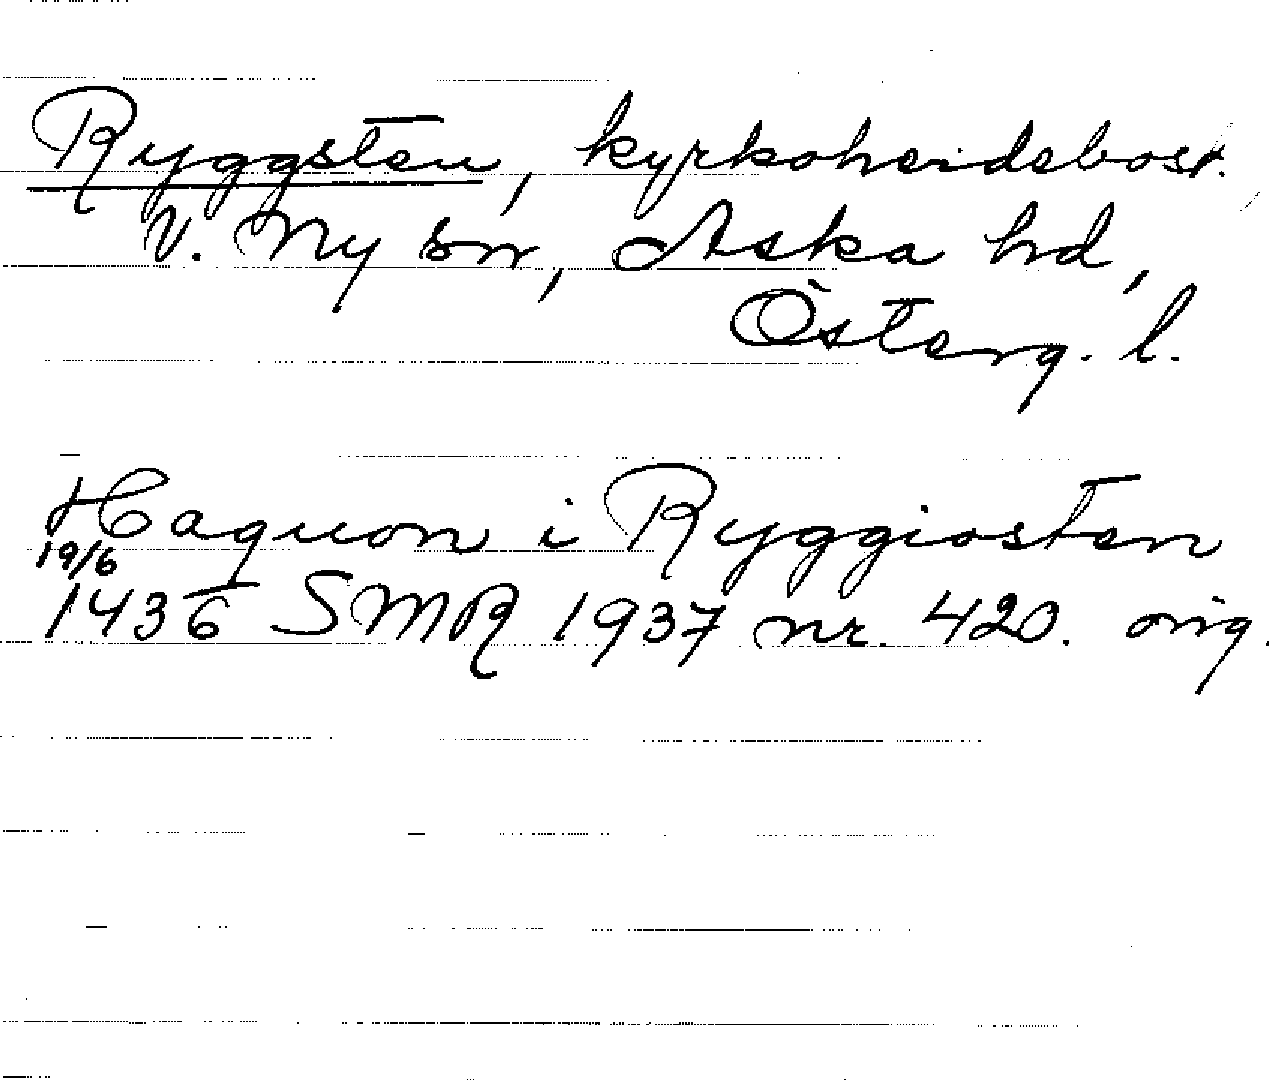 Ryggsten, kyrkoherdebost.
V. Ny sn, Aska hd,
Österg. l.
Haquon i Ryggiosten
19/6
1436 SMR 1937 nr. 420. orig.